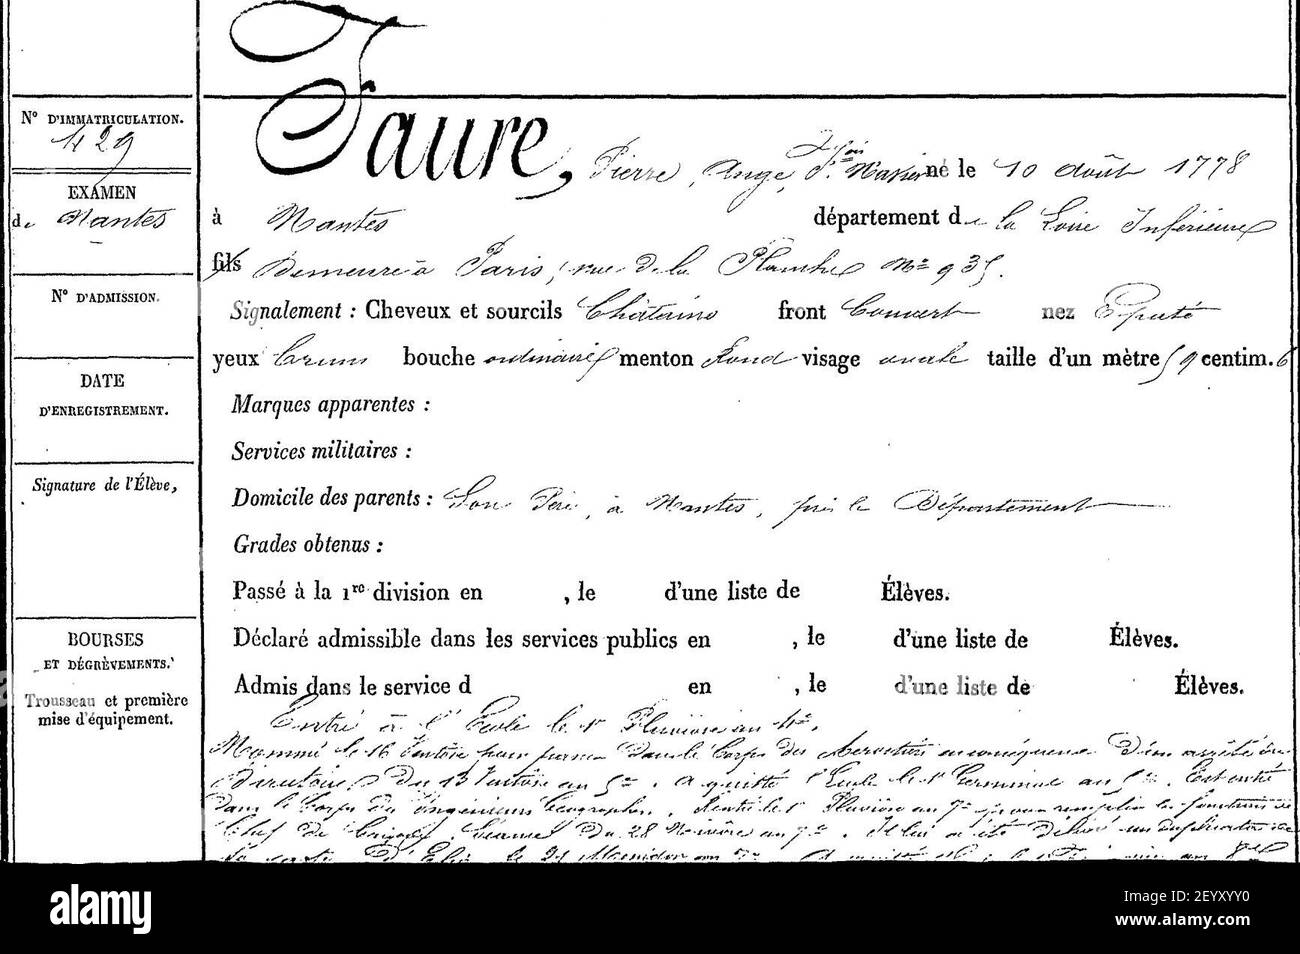 Faure, Pierre, Ange, Fçois Xavier né le 10 août 1778
à Nantes département de la Loire Inférieure
fils Demeure à Paris, rue de la Planche No 935.
Signalement : Cheveux et sourcils Châtains front Couvert nez Epaté
yeux bruns bouche ordinaire menton Rond visage ovale taille d'un mètre 59 centim. 6
Marques apparentes :
Services militaires :
Domicile des parents : Son Père, à Nantes, près le Département
Grades obtenus :
Passé à la 1re division en , le d'une liste de Élèves.
Déclaré admissible dans les services publics en , le d'une liste de Élèves.
Admis dans le service d en , le d'une liste de Élèves.
Entré à l'Ecole le 1er Pluviôse an 4e.
Nommé le 16 Ventôse pour passer dans le Corps des Aérostiers en conséquence d'un arrêté du
Directoire du 13 Ventôse an 5e. A quitté l'Ecole le 1er Germinal an 5e. Est entré
dans le Corps des Ingénieurs Géographes. Rentré le 1er Pluviôse an 7e pour remplir les fonctions de
Chef de Brigade, du 28 Nivôse an 7e. Il lui a été délivré un duplicata de
N° D'IMMATRICULATION.
429
EXAMEN
de Nantes
N° D'ADMISSION.
DATE
D'ENREGISTREMENT.
Signature de l'Élève,
BOURSES
ET DÉGRÈVEMENTS.
Trousseau et première
mise d'équipement.
alamy
Image ID: 2EYXYY0
www.alamy.com